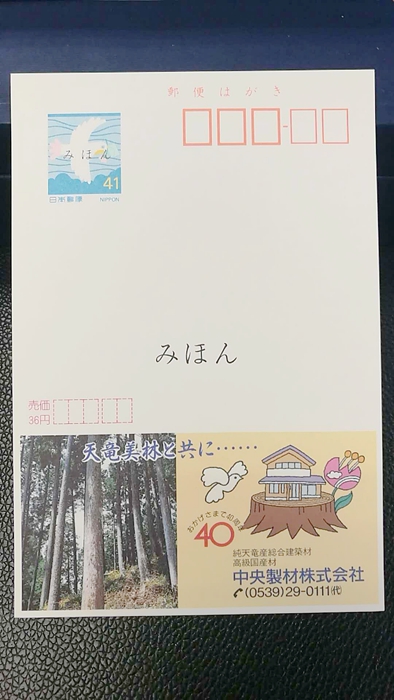 郵便はがき
みほん
41
日本郵便 NIPPON
みほん
売価
36円
天竜美林と共に……
おかげさまで40周年
40
純天竜産総合建築材
高級国産材
中央製材株式会社
(0539)29-0111(代)